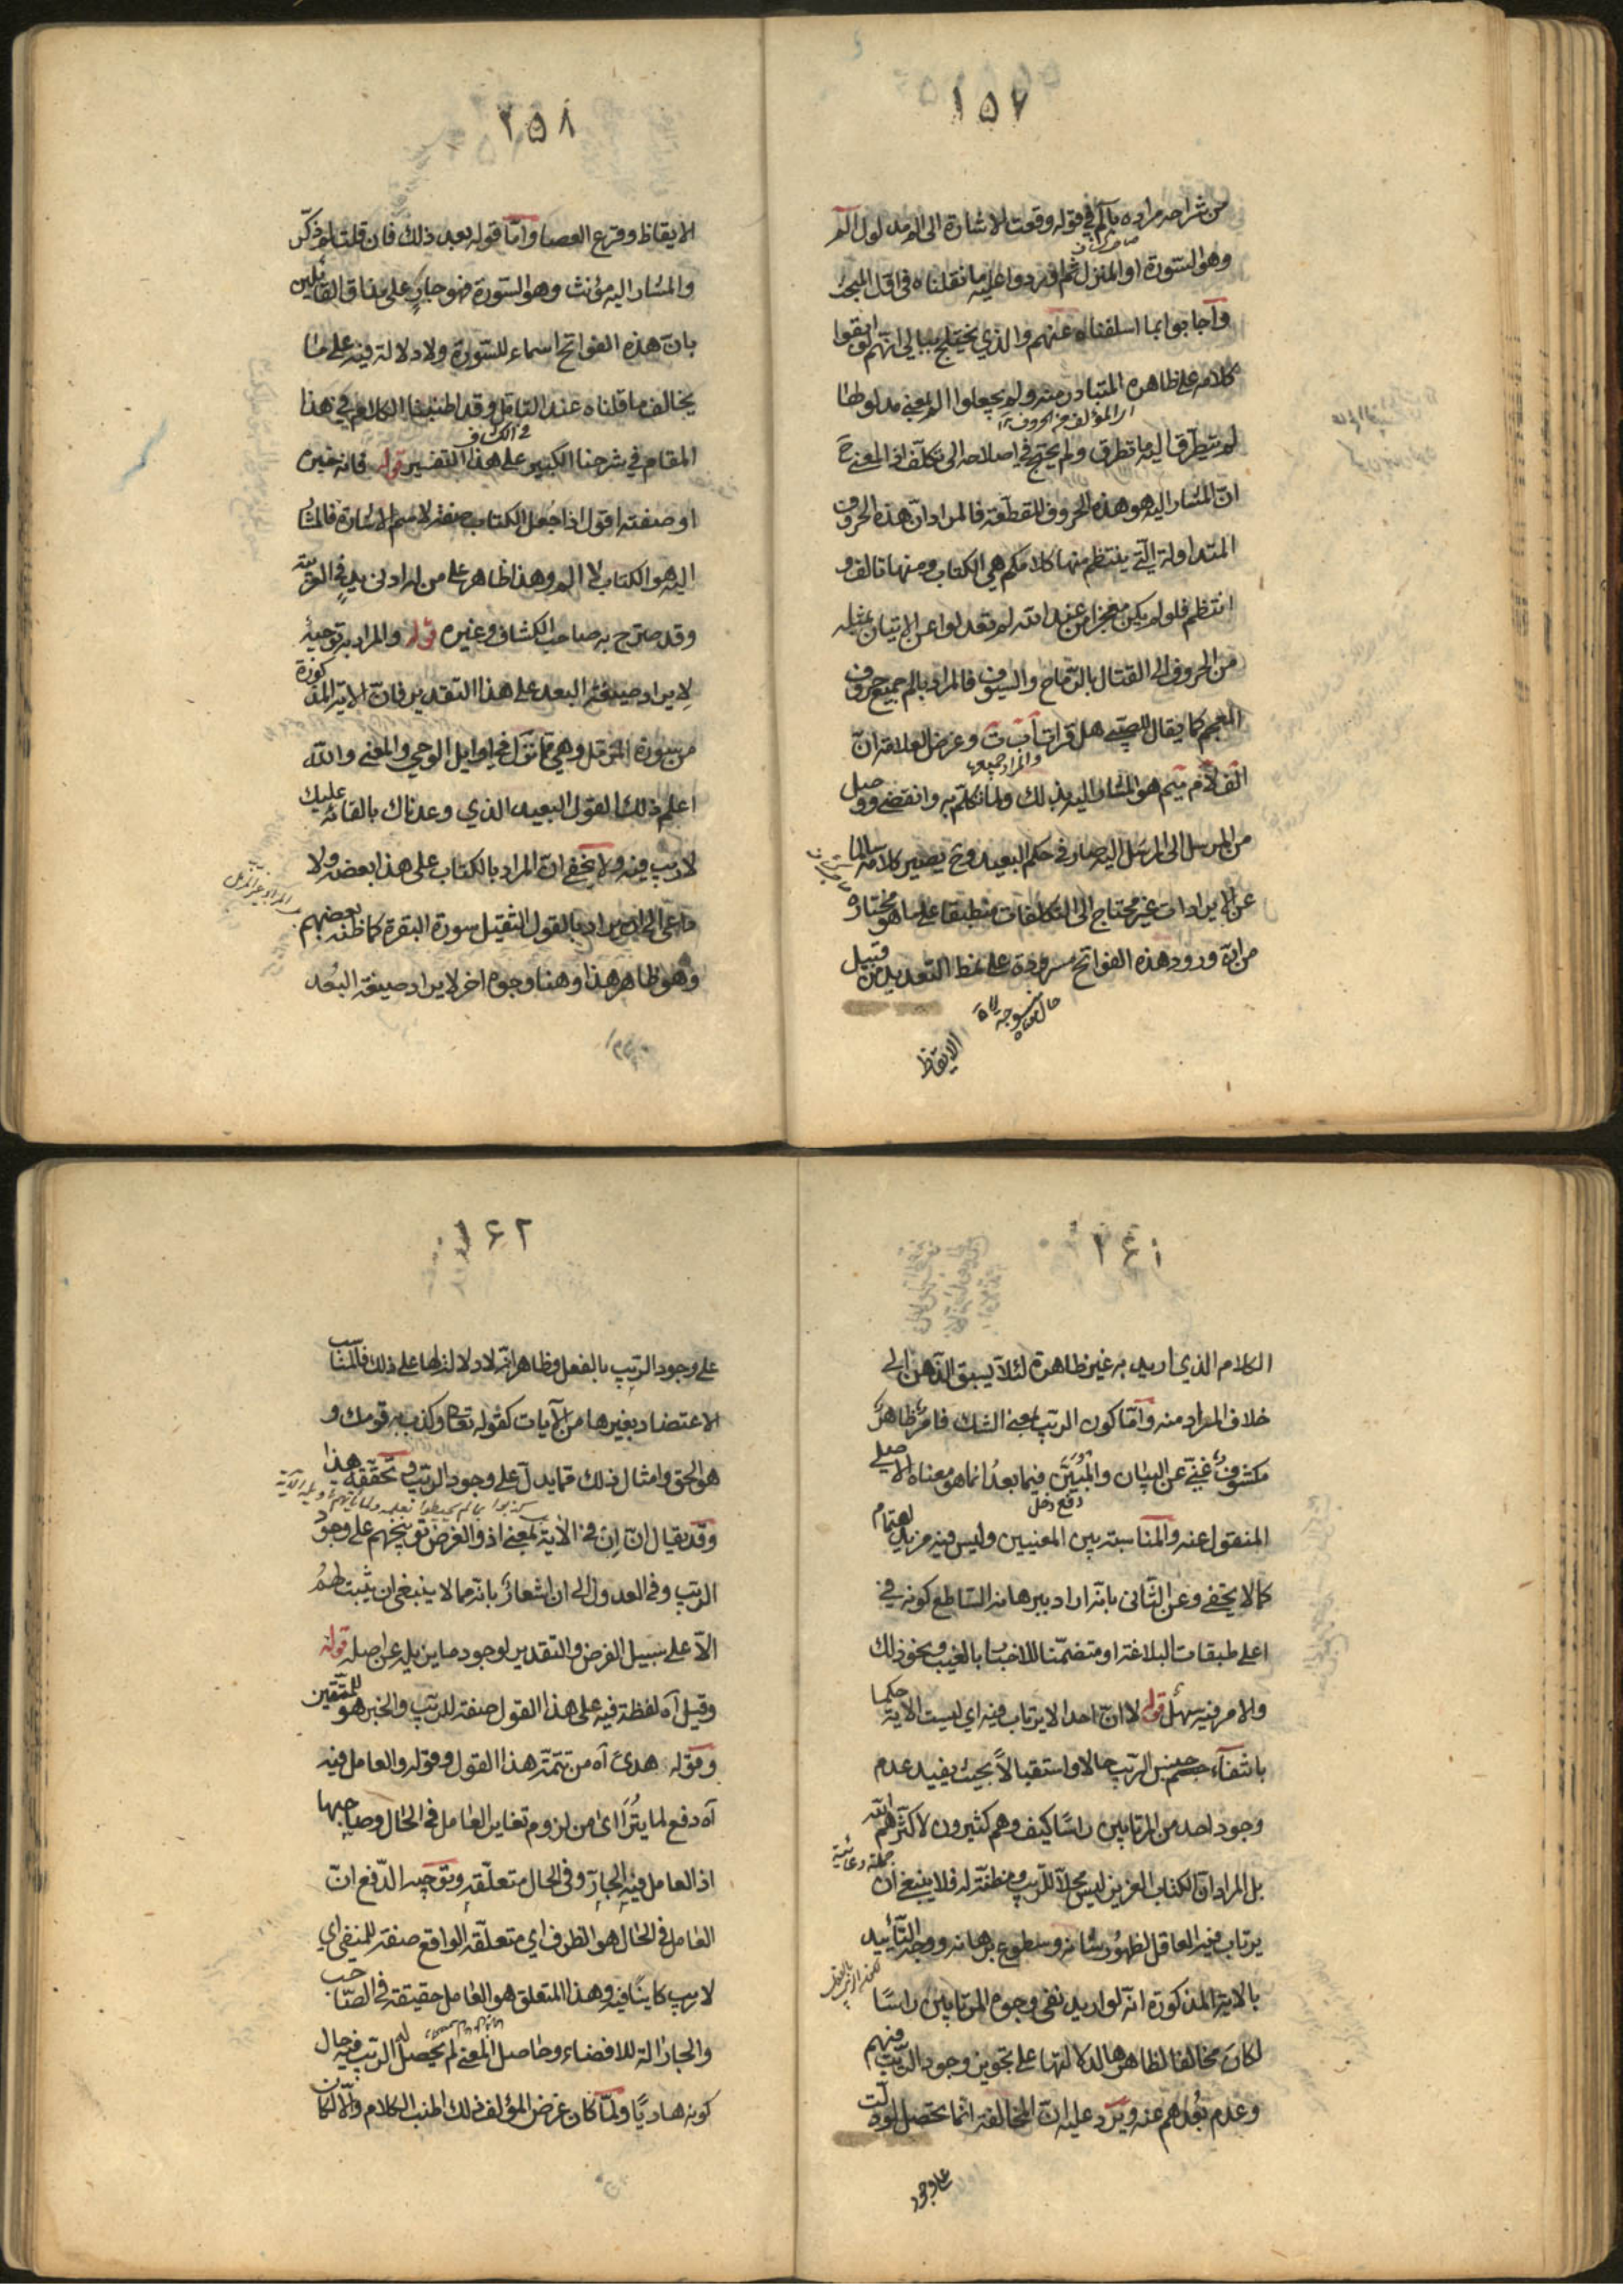 ١٥٧
من شراحه مراده بالم في قوله وقعت الاشارة الى الم مدلول الم
وهو السورة او المنزل ثم اوردوا عليه ما نقلناه في اول المبحث
واجابوا بما اسلفناه عنهم والذي يختلج ببالي انهم لو ابقوا
كلامه على ظاهره المتبادر منه ولم يجعلوا الم بمعنى مدلولها
اي المؤلف من الحروف
لم يتطرق اليه ما تطرق ولم يحتج في اصلاحه الى تكلف اذ المعنى ح
ان المشار اليه هو هذه الحروف المقطعة فالمراد ان هذه الحروف
المتداولة التي ينتظم منها كلامكم هي الكتاب ومنها تالف و
انتظم فلو لم يكن معجزا من عند الله لم تعدلوا عن الاتيان بمثله
من الحروف الى القتال بالرماح والسيوف فالمراد بالم جميع حروف
المعجم كما يقال للصبي هل قرات اب ت وغرض العلامة ان
والمراد جميعها
الف لام ميم هو المشار اليه بذلك ولما تكلم به وانقضى ووصل
من المرسل الى المرسل اليه صار في حكم البعيد وح يصير كلامه سالما
عن الايرادات غير محتاج الى التكلفات منطبقا على ما هو مختاره
من ان ورود هذه الفواتح مسرودة على نمط التعديد من قبيل
الايقاظ
٢٥٨
الايقاظ وقرع العصا واما قوله بعد ذلك فان قلت لم ذكر
والمشار اليه مؤنث وهو السورة فهو جار على مذاق القائلين
بان هذه الفواتح اسماء للسورة ولا دلالة فيه على ما
يخالف ما قلناه عند التامل وقد اطنبنا الكلام في هذا
في الكشاف
المقام في شرحنا الكبير على هذا التفسير قوله فانه خبره
او صفته اقول اذا جعل الكتاب صفة لاسم الاشارة فالمشار
اليه هو الكتاب لا الم وهذا ظاهر على من له ادنى يد في العربية
وقد صرح به صاحب الكشاف وغيره قوله والمراد به توجيه
لايراد صيغة البعد على هذا التقدير فان الاية المذكورة
من سورة المزمل وهي مما نزل في اوايل الوحي والمعنى والله
اعلم ذلك القول البعيد الذي وعدناك بالقائه عليك
لا ريب فيه ولا يخفى ان المراد بالكتاب على هذا بعضه ولا
داعي الى ان يراد بالقول الثقيل سورة البقرة كما ظنه بعضهم
وهو ظاهر هذا وهنا وجوه اخر لايراد صيغة البعد
١٦١
الكلام الذي اريد به غير ظاهرة لئلا يسبق الذهن الى
خلاف المراد منه واما كون الريب بمعنى الشك فامر ظاهر
مكشوف غني عن البيان والمبين فيما بعد انما هو معناه الاصلي
دفع دخل
المنقول عنه والمناسبة بين المعنيين وليس فيه مزيد اهتمام
كما لا يخفى وعن الثاني بانه اراد ببرهانه الساطع كونه في
اعلى طبقات البلاغة او متضمنا للاخبار بالغيب ونحو ذلك
والامر فيه سهل قوله لا ان احدا لا يرتاب فيه اي ليست الاية حكما
بانتفاء جنس الريب حالا واستقبالا بحيث يفيد عدم
وجود احد من المرتابين راسا كيف وهم كثيرون لا كثرهم الله
جملة دعائية
بل المراد ان الكتاب العزيز ليس محلا للريب ومظنة له فلا ينبغي ان
يرتاب فيه العاقل لظهور شانه وسطوع برهانه ووجه التاييد
بالاية المذكورة انه لو اريد نفي وجود المرتابين راسا
لكان مخالفا لظاهرها لدلالتها على تجويز وجود الريب منهم
وعدم بعدهم عنه ويرد عليه ان المخالفة انما تحصل لو دلت
على وجود
١٦٢
على وجود الريب بالفعل وظاهر انه لا دلالة لها على ذلك فالمناسب
الاعتضاد بغيرها من الآيات كقوله تعالى وكذب به قومك و
هو الحق وامثال ذلك مما يدل على وجود الريب وتحققه هذا
وقد يقال ان ان في الاية بمعنى اذ والغرض توبيخهم على وجود
الريب وفي العدول الى ان اشعار بانه مما لا ينبغي ان يثبت لهم
الا على سبيل الفرض والتقدير لوجود ما يزيله عن اصله قوله
وقيل آه لفظة فيه على هذا القول صفة للريب والخبر هو للمتقين
وقوله هدى آه من تتمة هذا القول وقوله والعامل فيه
آه دفع لما يترااى من لزوم تغاير العامل في الحال وصاحبها
اذ العامل فيه الجار وفي الحال متعلقه وتوجيه الدفع ان
العامل في الحال هو الظرف اي متعلقه الواقع صفة للمنفي اي
لا ريب كاينا فيه وهذا المتعلق هو العامل حقيقة في الصاحب
والجار الة للافضاء وحاصل المعنى لم يحصل الريب فيه حال
كونه هاديا ولما كان غرض المؤلف ذلك اطنب الكلام والا لكان